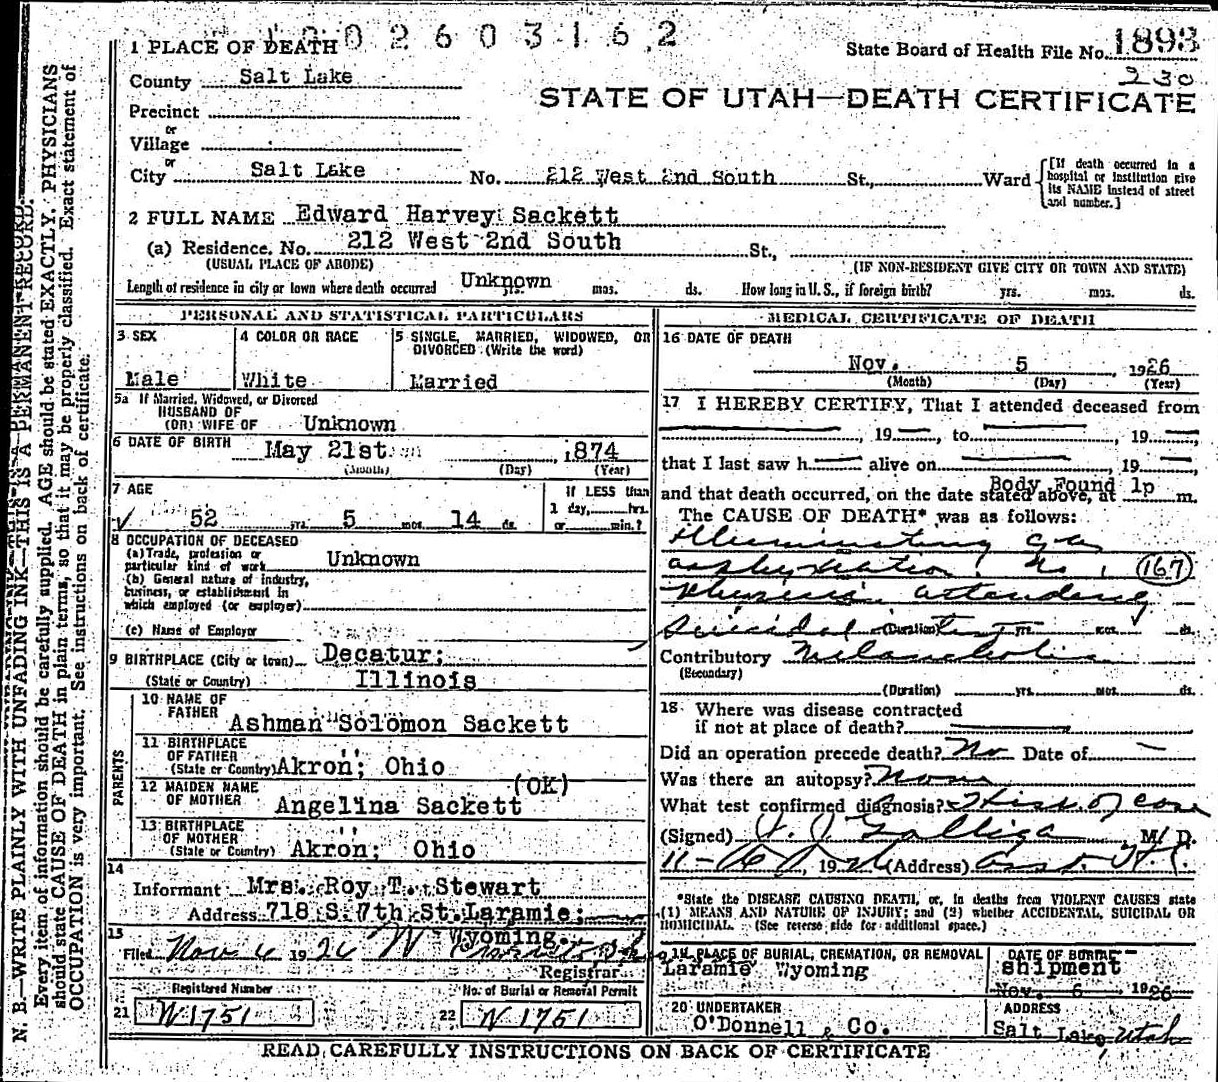 1 0 0 2 6 0 3 1 6 2
1 PLACE OF DEATH
State Board of Health File No. 1893
230
County Salt Lake
STATE OF UTAH—DEATH CERTIFICATE
Precinct
or
Village
or
City Salt Lake No. 212 West 2nd South St., Ward
[If death occurred in a hospital or institution give its NAME instead of street and number.]
2 FULL NAME Edward Harvey Sackett
(a) Residence. No. 212 West 2nd South St.,
(USUAL PLACE OF ABODE) (IF NON-RESIDENT GIVE CITY OR TOWN AND STATE)
Length of residence in city or town where death occurred Unknown yrs. mos. ds. How long in U. S., if foreign birth? yrs. mos. ds.
PERSONAL AND STATISTICAL PARTICULARS
3 SEX Male
4 COLOR OR RACE White
5 SINGLE, MARRIED, WIDOWED, OR DIVORCED (Write the word) Married
5a If Married, Widowed, or Divorced
HUSBAND OF
(OR) WIFE OF Unknown
6 DATE OF BIRTH May 21st 1874
(Month) (Day) (Year)
7 AGE 52 yrs. 5 mos. 14 ds.
If LESS than 1 day, hrs. or min.?
8 OCCUPATION OF DECEASED
(a) Trade, profession or particular kind of work Unknown
(b) General nature of industry, business, or establishment in which employed (or employer)
(c) Name of Employer
9 BIRTHPLACE (City or town) Decatur;
(State or Country) Illinois
PARENTS
10 NAME OF FATHER Ashman Solomon Sackett
11 BIRTHPLACE OF FATHER (State or Country) Akron; Ohio
12 MAIDEN NAME OF MOTHER Angelina Sackett (OK)
13 BIRTHPLACE OF MOTHER (State or Country) Akron; Ohio
14
Informant Mrs. Roy T. Stewart
Address 718 S 7th St. Laramie;
Wyoming.
15
Filed Nov 6 1926
Registrar
Registered Number
21 W1751
No. of Burial or Removal Permit
22 N 1751
MEDICAL CERTIFICATE OF DEATH
16 DATE OF DEATH
Nov. 5 1926
(Month) (Day) (Year)
17 I HEREBY CERTIFY, That I attended deceased from
, 19 , to , 19
that I last saw h alive on , 19
Body Found 1p
and that death occurred, on the date stated above, at m.
The CAUSE OF DEATH* was as follows:
Illuminating gas
asphyxiation. No 167
Physician attending
Suicidal intent (Duration) yrs. mos. ds.
Contributory Melancholia
(Secondary)
(Duration) yrs. mos. ds.
18 Where was disease contracted
if not at place of death?
Did an operation precede death? No Date of
Was there an autopsy? None
What test confirmed diagnosis? Hist of case
(Signed) M. D.
, 1926 (Address)
*State the DISEASE CAUSING DEATH, or, in deaths from VIOLENT CAUSES state
(1) MEANS AND NATURE OF INJURY; and (2) whether ACCIDENTAL, SUICIDAL OR
HOMICIDAL. (See reverse side for additional space.)
19 PLACE OF BURIAL, CREMATION, OR REMOVAL
Laramie Wyoming
DATE OF BURIAL
shipment
Nov. 6, 1926
20 UNDERTAKER
O'Donnell & Co.
ADDRESS
Salt Lake Utah
READ CAREFULLY INSTRUCTIONS ON BACK OF CERTIFICATE
N. B.—WRITE PLAINLY WITH UNFADING INK—THIS IS A PERMANENT RECORD.
Every item of information should be carefully supplied. AGE should be stated EXACTLY. PHYSICIANS
should state CAUSE OF DEATH in plain terms, so that it may be properly classified. Exact statement of
OCCUPATION is very important. See instructions on back of certificate.